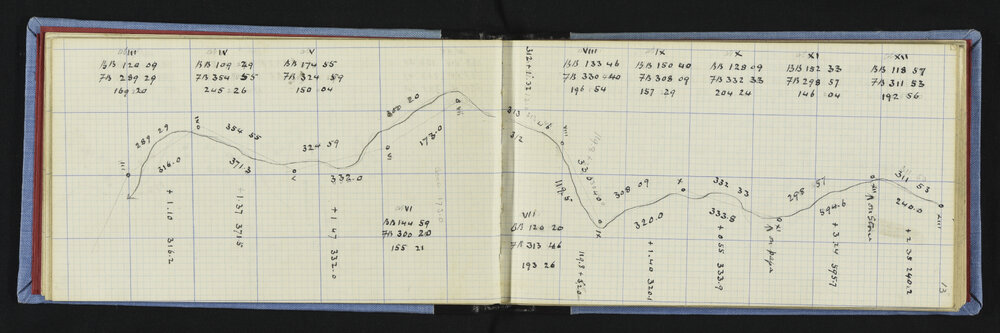 III
BB 120 09
FB 289 29
169.20
IV
BB 109 29
FB 354 55
245.26
V
BB 174 55
FB 324 59
150.04
289 29
316.0
III
IV
354 55
371.3
324 59
332.0
V
350 20
VI
173.0
VII
+1.10 316.2
+1.37 371.5
+1.47 332.0
VI
BB 144 59
FB 300 20
155 21
312+1.32
VII
BB 120 20
FB 313 46
193 26
VIII
BB 133 46
FB 330 40
196.54
IX
BB 150 40
FB 308 09
157.29
X
BB 128 09
FB 332 33
204 24
XI
BB 152 33
FB 298 57
146.04
XII
BB 118 57
FB 311 53
192 56
313 46
312
VIII
119.5
IX
308 09
320.0
X
332 33
333.8
XI
298 57
594.6
XII
311 53
240.0
XIII
+1.40 320.1
+0.55 333.9
+3.24 595.7
+2.38 240.2
13